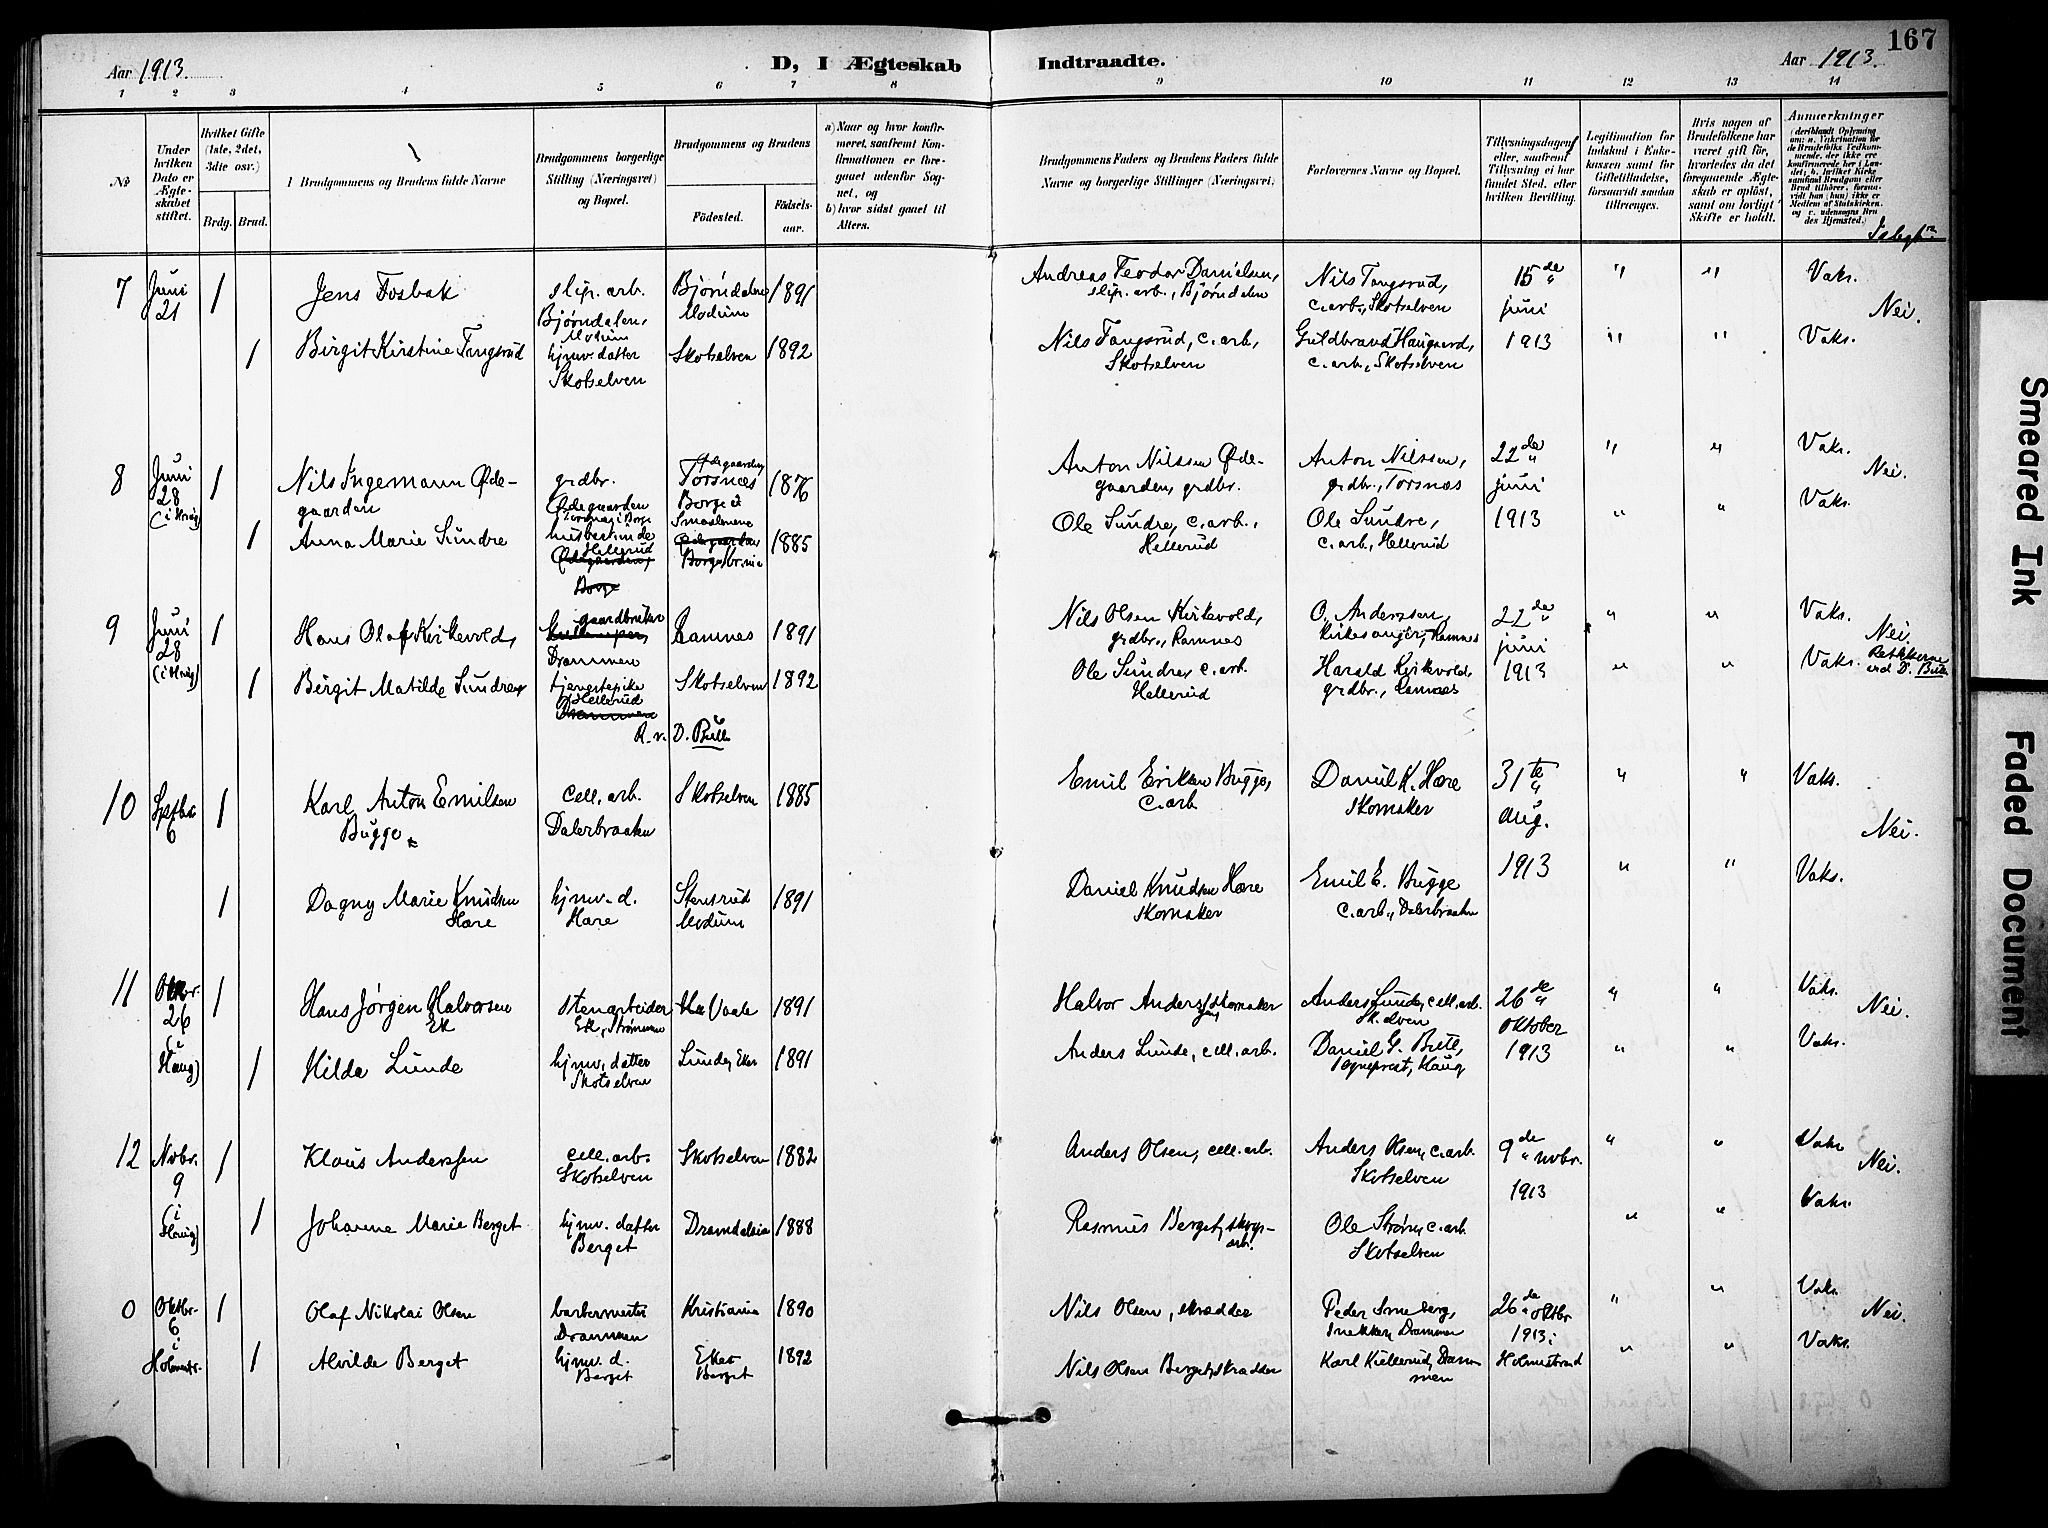 167
Aar 1913.
D, I Ægteskab Indtraadte.
Aar 1913.
1 2 3 4 5 6 7 8 9 10 11 12 13 14
No
Under hvilken Dato er Ægteskabet stiftet.
Hvilket Gifte (1ste, 2det, 3die osv.)
Brdg. Brud.
1 Brudgommens og Brudens fulde Navne
Brudgommens borgerlige Stilling (Næringsvei) og Bopæl.
Brudgommens og Brudens
Födested.
Födselsaar.
a) Naar og hvor konfirmeret, saafremt Konfirmationen er foregaaet udenfor Sognet, og
b) hvor sidst gaaet til Alters.
Brudgommens Faders og Brudens Faders fulde Navne og borgerlige Stillinger (Næringsvei).
Forlovernes Navne og Bopæl.
Tillysningsdagen, eller, saafremt Tillysning ei har fundet Sted, efter hvilken Bevilling.
Legitimation for Indskud i Enkekassen samt for Giftetilladelse, forsaavidt saadan tiltrænges.
Hvis nogen af Brudefolkene har været gift för, hvorledes da det foregaaende Ægteskab er oplöst, samt om lovligt Skifte er holdt.
Anmærkninger
7 Juni 21 1 Jens Fosbak slip. arb. Bjørndalen, Modum Bjørndalen Modum 1891 Andreas Teodor Danielsen, slip. arb., Bjørndalen Nils Tangsrud, c. arb., Skotselven 15de juni " " Vaks. Nei.
1 Birgit Kirstine Tangsrud hjmv. datter Skotselven Skotselven 1892 Nils Tangsrud, c. arb, Skotselven Guldbrand Haugaard, c. arb., Skotselven 1913 " " Vaks.
8 Juni 28 1 Nils Ingemann Ødegaarden grdbr. Ødegaarden Torsnæs i Borge Ødegaarden Torsnæs Borge i Smaalenene 1876 Anton Nilssen Ødegaarden, grdbr. Anton Nilssen, grdbr., Torsnæs 22de juni " " Vaks. Nei.
1 Anna Marie Sundre husbestinde Hellerud Ødegaarden, Borge 1885 Ole Sundre, c. arb., Hellerud Ole Sundre, c. arb., Hellerud 1913 " " Vaks.
9 Juni 28 1 Hans Olaf Kirkevold, gaardbruker Drammen Ramnes 1891 Nils Olsen Kirkevold, grdbr., Ramnes O. Anderssen, kirkesanger, Ramnes 22de juni " " Vaks. Nei.
1 Birgit Matilde Sundre tjenestepike Hellerud Skotselven 1892 Ole Sundre, c. arb. Hellerud Harald Kirkevold, grdbr., Ramnes 1913 " " Vaks.
R. v. D. Bull
10 Septbr. 6 1 Karl Anton Emilsen Bugge cell. arb. Dalerbraaten Skotselven 1885 Emil Eriksen Bugge, c. arb Daniel K. Hære skomaker 31te aug. " " Vaks. Nei.
1 Dagny Marie Knudsen Hære hjmv. d. Hære Stensrud Modum 1891 Daniel Knudsen Hære skomaker Emil E. Bugge c. arb., Dalerbraaten 1913 " " Vaks.
11 Oktbr. 26 (i Haug) 1 Hans Jørgen Halvorsen Ek stenarbeider Ek, Strømmen Vaale 1891 Halvor Anderssen, skomaker Anders Lunde, cell. arb. Sk.elven 26de oktober " " Vaks. Nei.
1 Hilda Lunde hjmv. datter Skotselven Lunde, Eker 1891 Anders Lunde, cell. arb. Daniel G. Bull, sogneprest, Haug 1913 " " Vaks.
12 Novbr. 9 (i Haug) 1 Klaus Anderssen cell. arb. Skotselven Skotselven 1882 Anders Olsen, cell. arb. Anders Olsen, c. arb. Skotselven 9de novbr. " " Vaks Nei.
1 Johanne Marie Berget hjmv. datter Berget 1888 Rasmus Berget, skogsarb. Ole Strøm, c. arb Skotselven 1913 " " Vaks.
0 Oktbr. 6 i Holmestr. 1 Olaf Nikolai Olsen barbermester Drammen Kristiania 1890 Nils Olsen, skrædder Peder Smeberg, snekker, Drammen 26de oktbr 1913 i Holmestrand " " Vaks. Nei.
1 Alvilde Berget hjmv. d. Berget Eker Berget 1892 Nils Olsen Berget, skrædder Karl Kjellerud, Drammen " " Vaks.
Smeared Ink
Faded Document